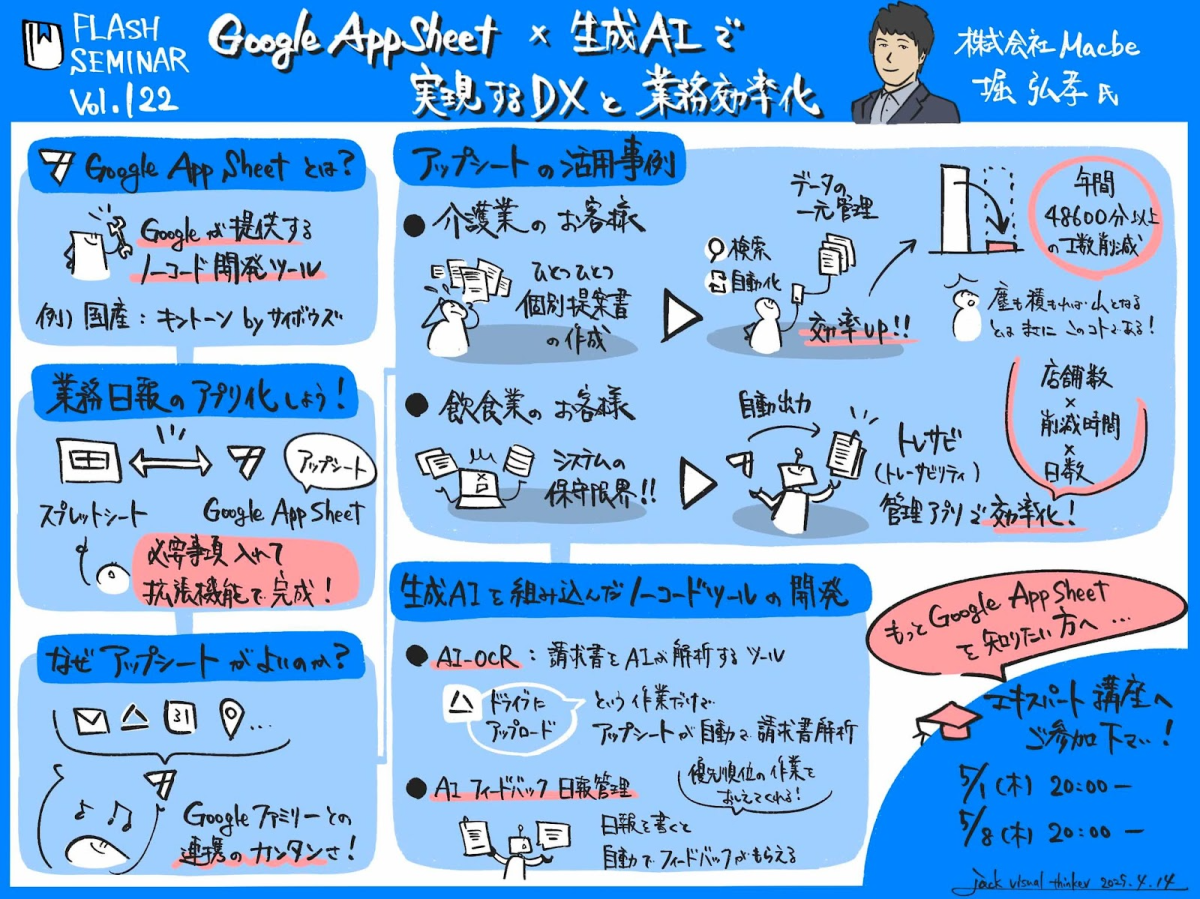 FLASH
SEMINAR
Vol.122
Google AppSheet × 生成AIで
実現するDXと業務効率化
株式会社Macbe
堀 弘孝氏
Google App Sheetとは?
Googleが提供する
ノーコード開発ツール
例) 国産:キントーン by サイボウズ
業務日報のアプリ化しよう!
アップシート
スプレットシート
Google App Sheet
必要事項入れて
拡張機能で完成!
なぜアップシートがよいのか?
31
...
Googleファミリーとの
連携のカンタンさ!
アップシートの活用事例
●介護業のお客様
ひとつひとつ
個別提案書
の作成
データの
一元管理
検索
自動化
効率up!!
年間
48600分以上
の工数削減
塵も積もれば山となる
とはまさにこのコトである!
●飲食業のお客様
システムの
保守限界!!
自動出力
トレサビ
(トレーサビリティ)
管理アプリで効率化!
店舗数
×
削減時間
×
日数
生成AIを組み込んだノーコードツールの開発
●AI-OCR:請求書をAIが解析するツール
ドライブに
アップロード
という作業だけで
アップシートが自動で請求書解析
●AIフィードバック日報管理
優先順位の作業を
おしえてくれる!
日報を書くと
自動でフィードバックがもらえる
もっとGoogle AppSheet
を知りたい方へ...
エキスパート講座へ
ご参加下さい!
5/1(木) 20:00ー
5/8(木) 20:00ー
jack visual thinker 2025.4.14